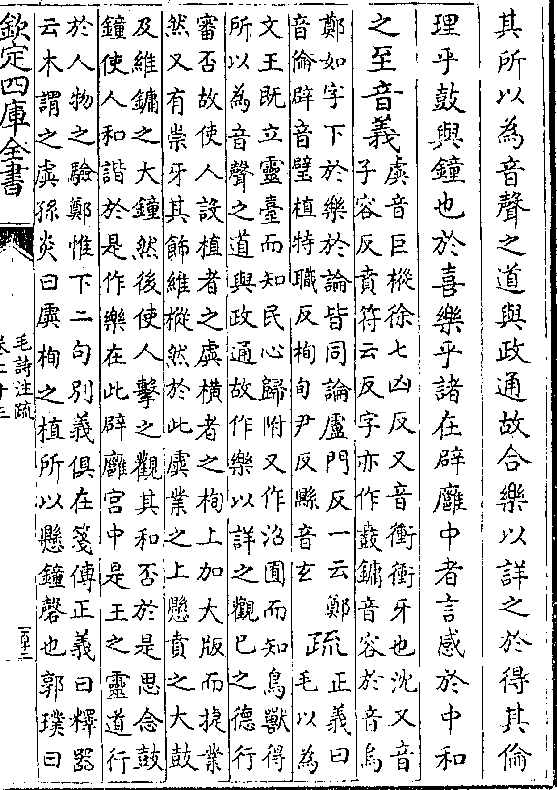 其所以為音聲之道與政通故合樂以詳之於得其倫
理乎鼓與鐘也於喜樂乎諸在辟廱中者言感於中和
之至音義虡音巨樅徐七凶反又音衝衝牙也沈又音
子容反賁符云反字亦作鼖鏞音容於音烏
鄭如字下於樂於論皆同論盧門反一云鄭
音倫辟音璧植特職反栒旬尹反縣音玄
疏正義曰
毛以為
文王既立靈臺而知民心歸附又作沼囿而知鳥獸得
所以為音聲之道與政通故作樂以詳之觀已之德行
審否故使人設植者之虡横者之栒上加大版而捷業
然又有崇牙其飾維樅然於此虡業之上懸賁之大鼓
及維鏞之大鐘然後使人擊之觀其和否於是思念鼓
鐘使人和諧於是作樂在此辟廱宮中是王之靈道行
於人物之驗鄭惟下二句別義俱在箋傳正義曰釋器
云木謂之虡孫炎曰虡栒之植所以懸鐘磬也郭璞曰
欽定四庫全書
毛詩注疏
卷二十三